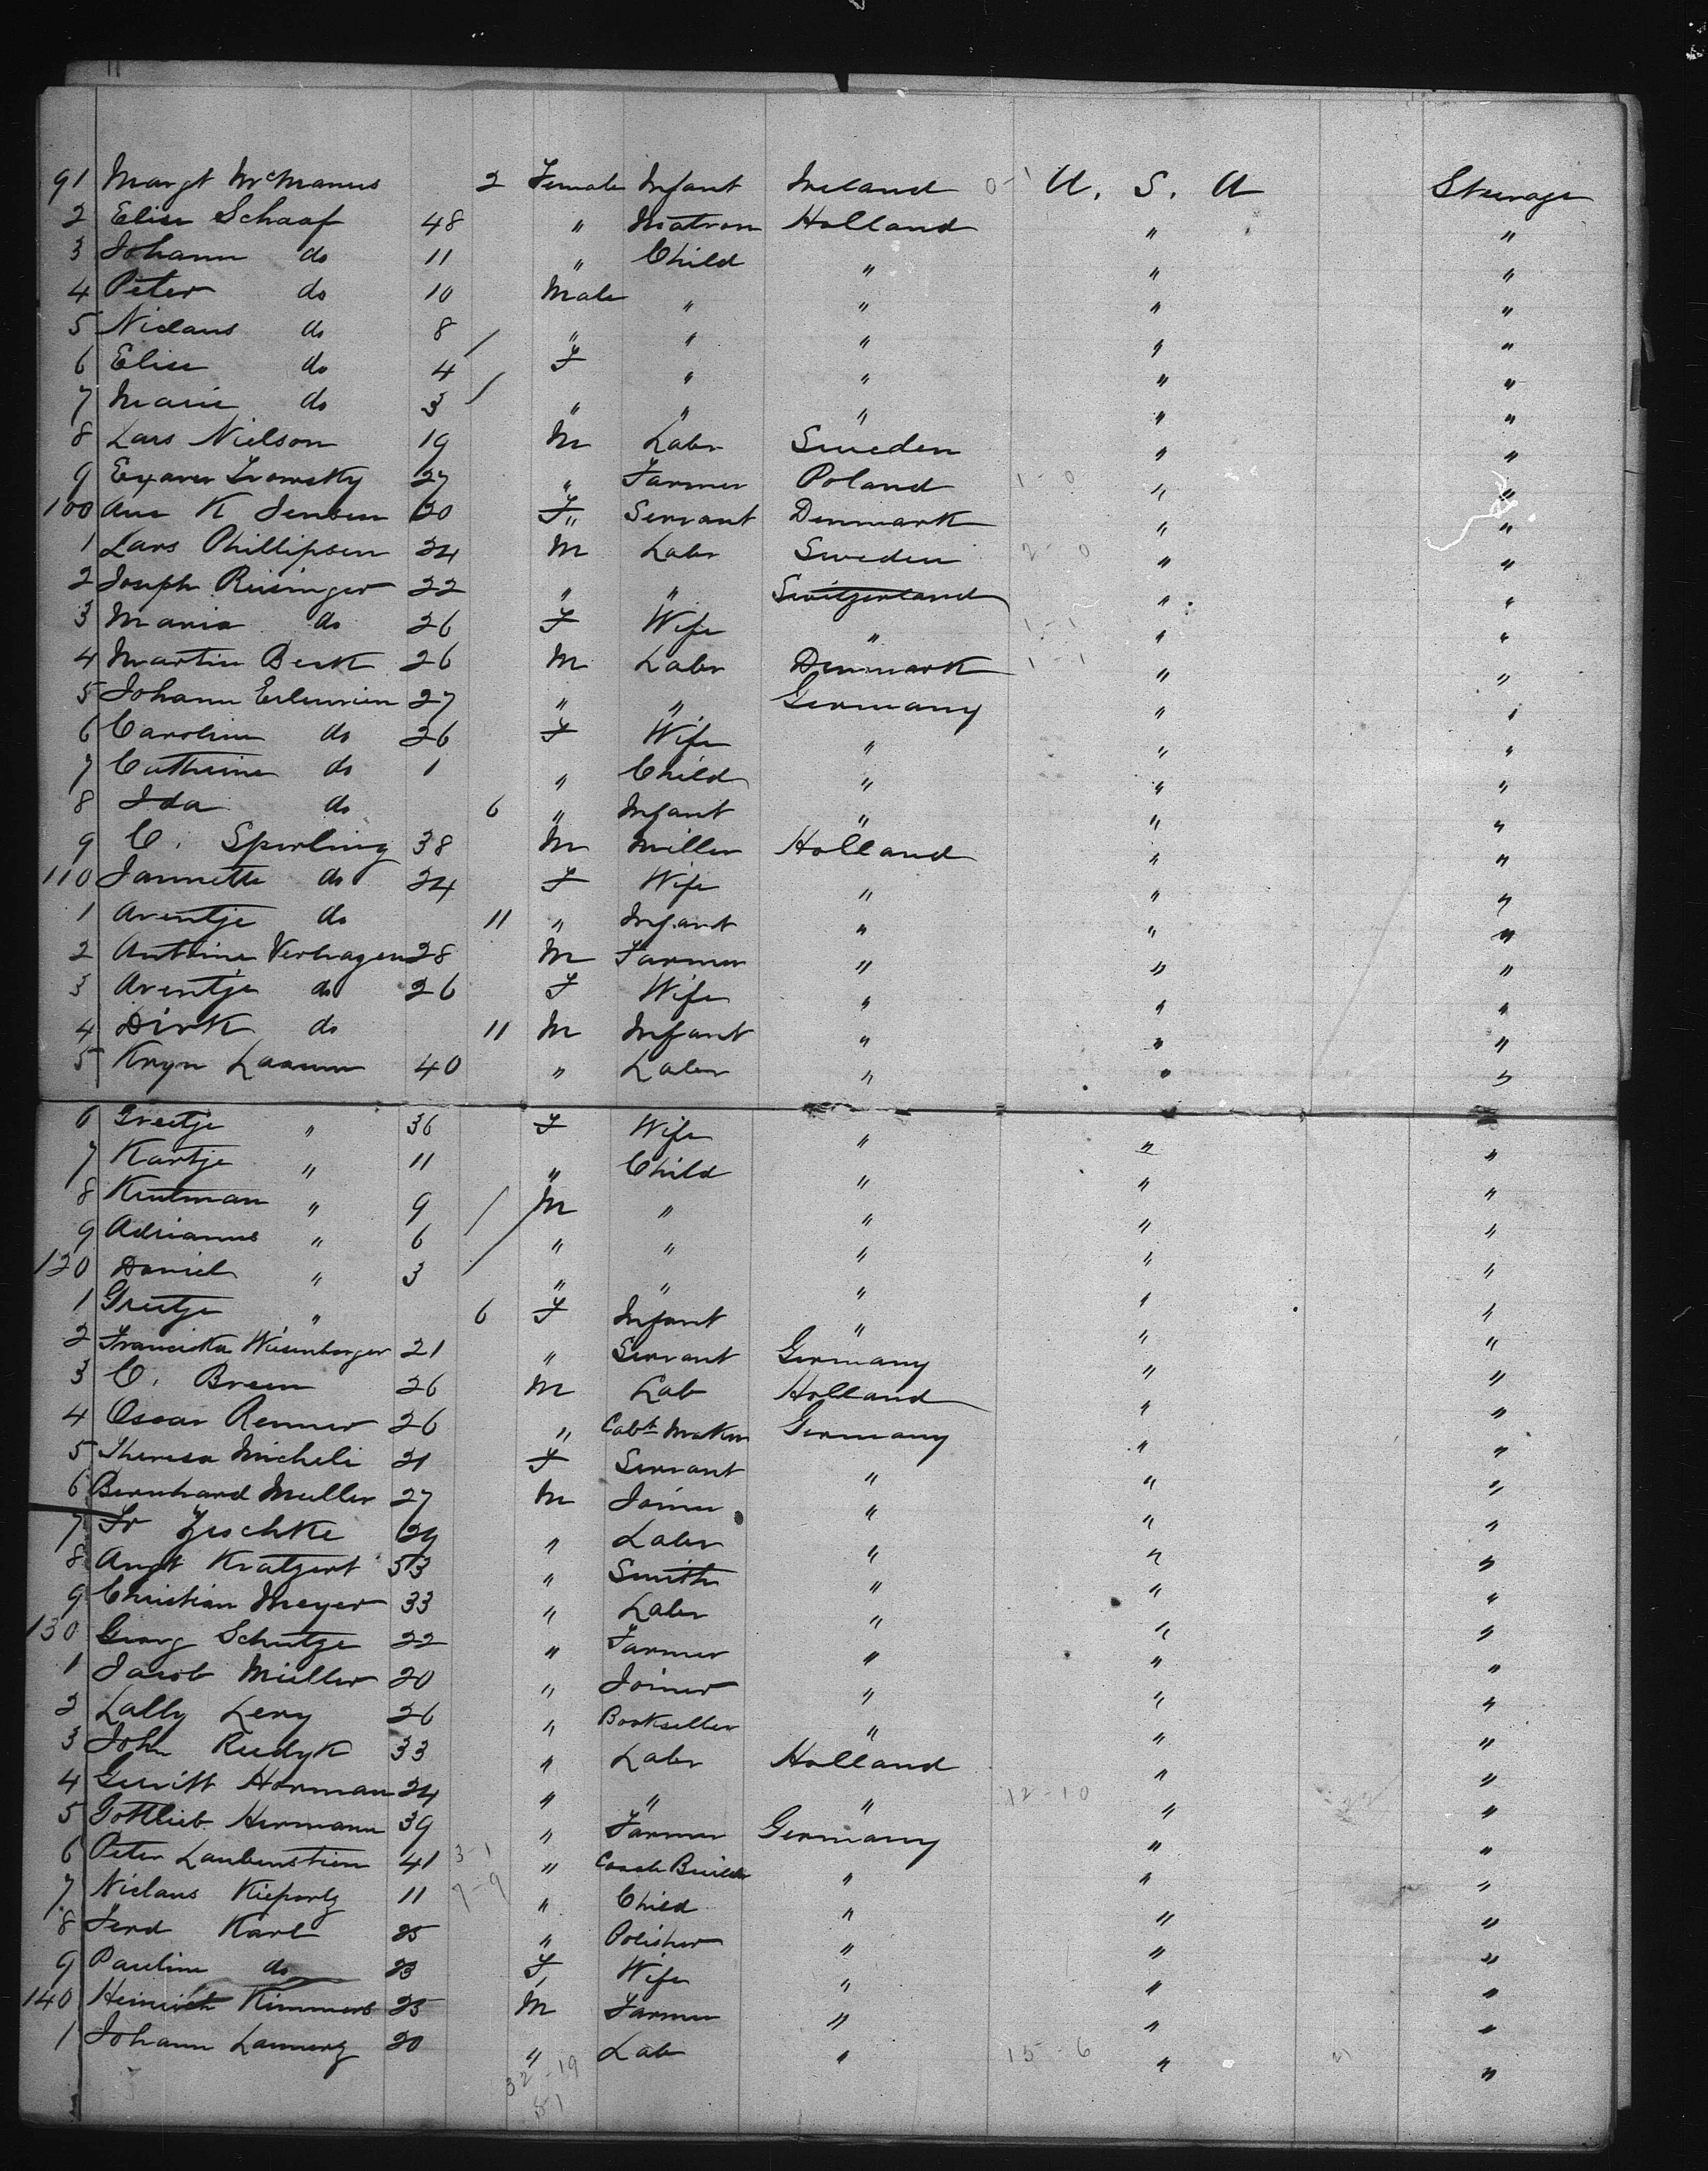 91 Margt McManus 2 Female Infant Ireland 0-1 U. S. A Steerage
2 Elise Schaaf 48 " Matron Holland " "
3 Johann do 11 " Child " " "
4 Peter do 10 Male " " " "
5 Niclaus do 8 / " " " " "
6 Elise do 4 / F " " " "
7 Marie do 3 " " " " "
8 Lars Nielson 19 M Labr Sweden " "
9 27 " Farmer Poland 1-0 " "
100 Ane K Jensen 20 F " Servant Denmark " "
1 Lars Phillipsen 24 M Labr Sweden 2-0 " "
2 Joseph Reisinger 22 " " Switzerland " "
3 Maria do 26 F Wife " 1-1 " "
4 Martin Beck 26 M Labr Denmark 1-1 " "
5 Johann 27 " " Germany " "
6 Caroline do 26 F Wife " " "
7 Catherine do 1 " Child " " "
8 Ida do 6 " Infant " " "
9 C. Sperling 38 M Miller Holland " "
110 Jannette do 24 F Wife " " "
1 Arentje do 11 " Infant " " "
2 Antoine Verhagen 28 M Farmer " " "
3 Arentje do 26 F Wife " " "
4 Dirk do 11 M Infant " " "
5 Kryn 40 " Labr " " "
6 Greetje " 36 F Wife " " "
7 Kartje " 11 " Child " " "
8 " 9 / / M " " " "
9 Adrianus " 6 / " " " " "
120 Daniel " 3 " " " " "
1 Grietje " 6 F Infant " " "
2 Franciska 21 " Servant Germany " "
3 C. Breen 26 M Lab Holland " "
4 Oscar Renner 26 " Cabt Maker Germany " "
5 Theresa Micheli 21 F Servant " " "
6 Bernhard Muller 27 M Joiner " " "
7 Fr Zeschke 29 " Labr " " "
8 Augt Kratzert 53 " Smith " " "
9 Christian Meyer 33 " Labr " " "
130 Georg Schutze 22 " Farmer " " "
1 Jacob Müller 20 " Joiner " " "
2 Lally Levy 26 " Bookseller " " "
3 John Ruidyk 33 " Labr Holland " "
4 Gerritt Horman 24 " " " 12-10 " "
5 Gottlieb Hermann 39 " Farmer Germany " "
6 Peter Laubenstien 41 3-1 " Coach Builder " " "
7 Niclaus 11 7-9 " Child " " "
8 Ferd Karl 25 " Polisher " " "
9 Pauline do 23 F Wife " " "
140 Heinrich Kimmers 25 M Farmer " " "
1 Johann Lannerz 20 " Lab " 15-6 " "
32-19
51